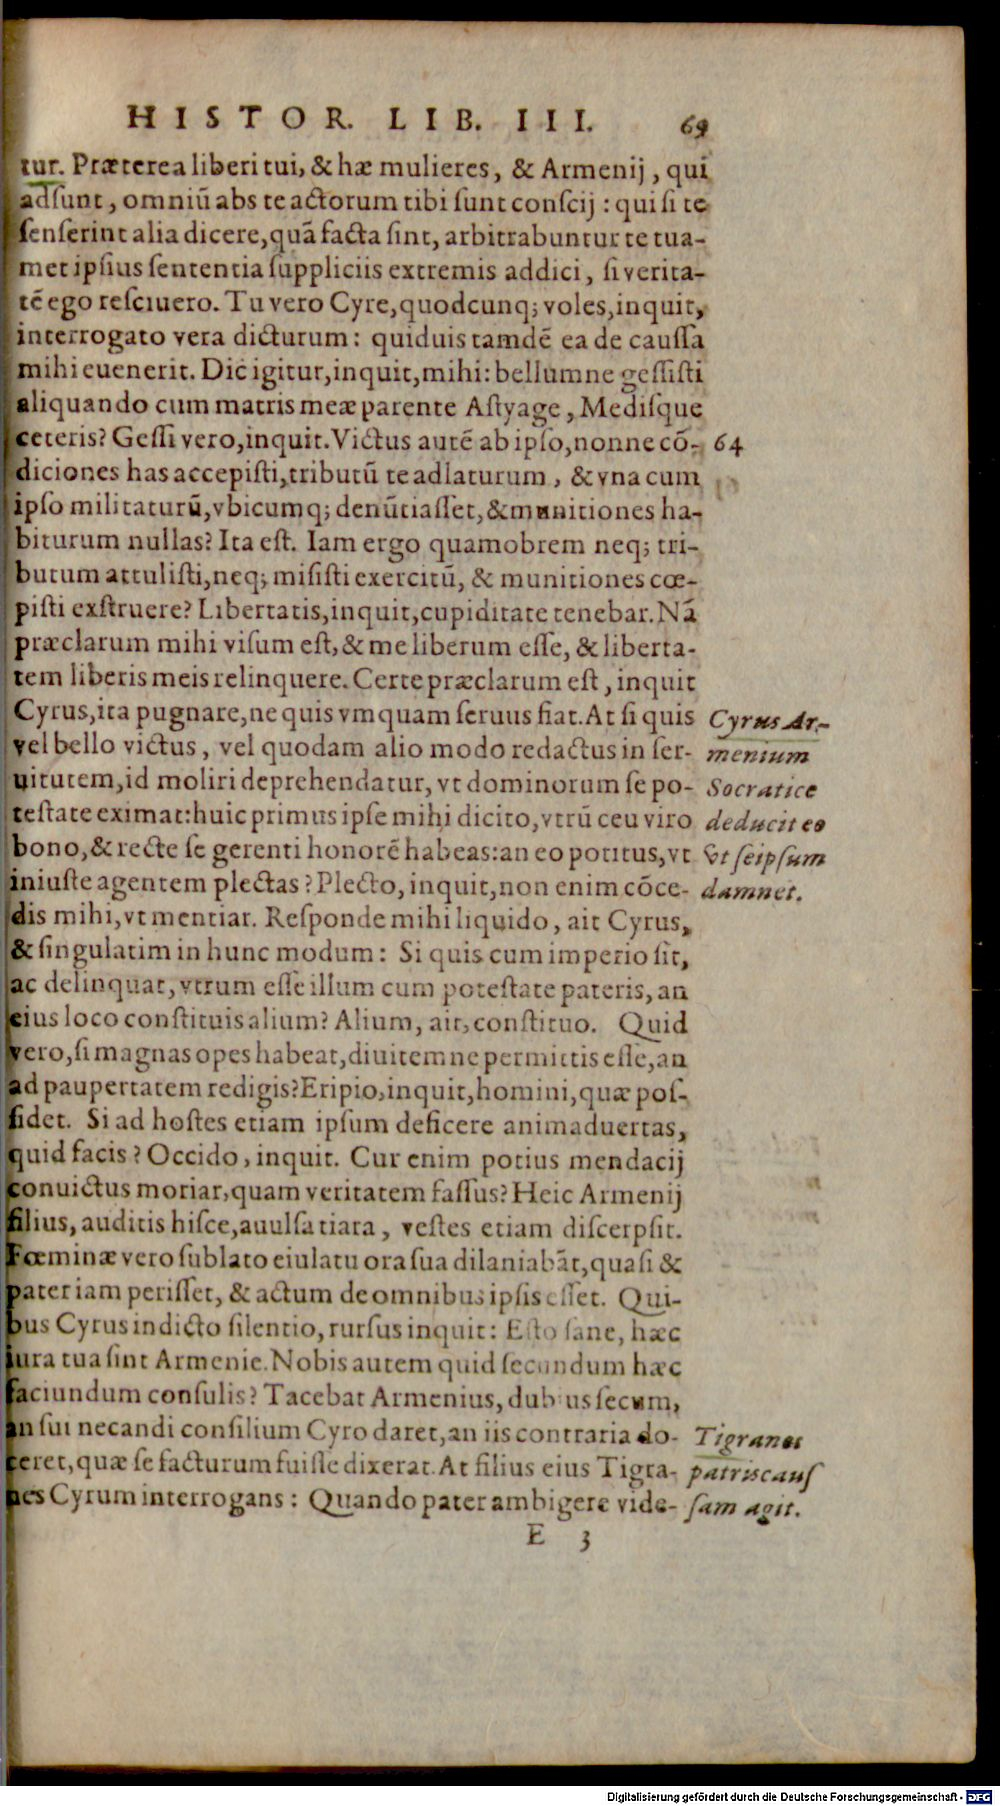 HISTOR. LIB. III. 69
tur. Præterea liberi tui, & hæ mulieres, & Armenij, qui
adſunt, omniũ abs te actorum tibi ſunt conſcij: qui ſi te
ſenſerint alia dicere, quã facta ſint, arbitrabuntur te tua-
met ipſius ſententia ſuppliciis extremis addici, ſi verita-
tẽ ego reſciuero. Tu vero Cyre, quodcunq; voles, inquit,
interrogato vera dicturum: quiduis tamdẽ ea de cauſſa
mihi euenerit. Dic igitur, inquit, mihi: bellumne geſſiſti
aliquando cum matris meæ parente Aſtyage, Mediſque
ceteris? Geſſi vero, inquit. Victus autẽ ab ipſo, nonne cõ-
64
diciones has accepiſti, tributũ te adlaturum, & vna cum
ipſo militaturũ, vbicumq; denũtiaſſet, & munitiones ha-
biturum nullas? Ita eſt. Iam ergo quamobrem neq; tri-
butum attuliſti, neq; miſiſti exercitũ, & munitiones cœ-
piſti exſtruere? Libertatis, inquit, cupiditate tenebar. Nã
præclarum mihi viſum eſt, & me liberum eſſe, & liberta-
tem liberis meis relinquere. Certe præclarum eſt, inquit
Cyrus, ita pugnare, ne quis vmquam ſeruus fiat. At ſi quis
vel bello victus, vel quodam alio modo redactus in ſer-
uitutem, id moliri deprehendatur, vt dominorum ſe po-
teſtate eximat: huic primus ipſe mihi dicito, vtrũ ceu viro
bono, & recte ſe gerenti honorẽ habeas: an eo potitus, vt
iniuſte agentem plectas? Plecto, inquit, non enim cõce-
Cyrus Ar-
menium
Socratice
deducit eo
vt ſeipſum
damnet.
dis mihi, vt mentiar. Reſponde mihi liquido, ait Cyrus,
& ſingulatim in hunc modum: Si quis cum imperio ſit,
ac delinquat, vtrum eſſe illum cum poteſtate pateris, an
eius loco conſtituis alium? Alium, ait, conſtituo. Quid
vero, ſi magnas opes habeat, diuitemne permittis eſſe, an
ad paupertatem redigis? Eripio, inquit, homini, quæ poſ-
ſidet. Si ad hoſtes etiam ipſum deficere animaduertas,
quid facis? Occido, inquit. Cur enim potius mendacij
conuictus moriar, quam veritatem faſſus? Heic Armenij
filius, auditis hiſce, auulſa tiara, veſtes etiam diſcerpſit.
Fœminæ vero ſublato eiulatu ora ſua dilaniabãt, quaſi &
pater iam periſſet, & actum de omnibus ipſis eſſet. Qui-
bus Cyrus indicto ſilentio, rurſus inquit: Eſto ſane, hæc
iura tua ſint Armenie. Nobis autem quid ſecundum hæc
faciundum conſulis? Tacebat Armenius, dubius ſecum,
an ſui necandi conſilium Cyro daret, an iis contraria do-
ceret, quæ ſe facturum fuiſſe dixerat. At filius eius Tigra-
nes Cyrum interrogans: Quando pater ambigere vide-
Tigranes
patris cauſ
ſam agit.
E 3
Digitalisierung gefördert durch die Deutsche Forschungsgemeinschaft - DFG